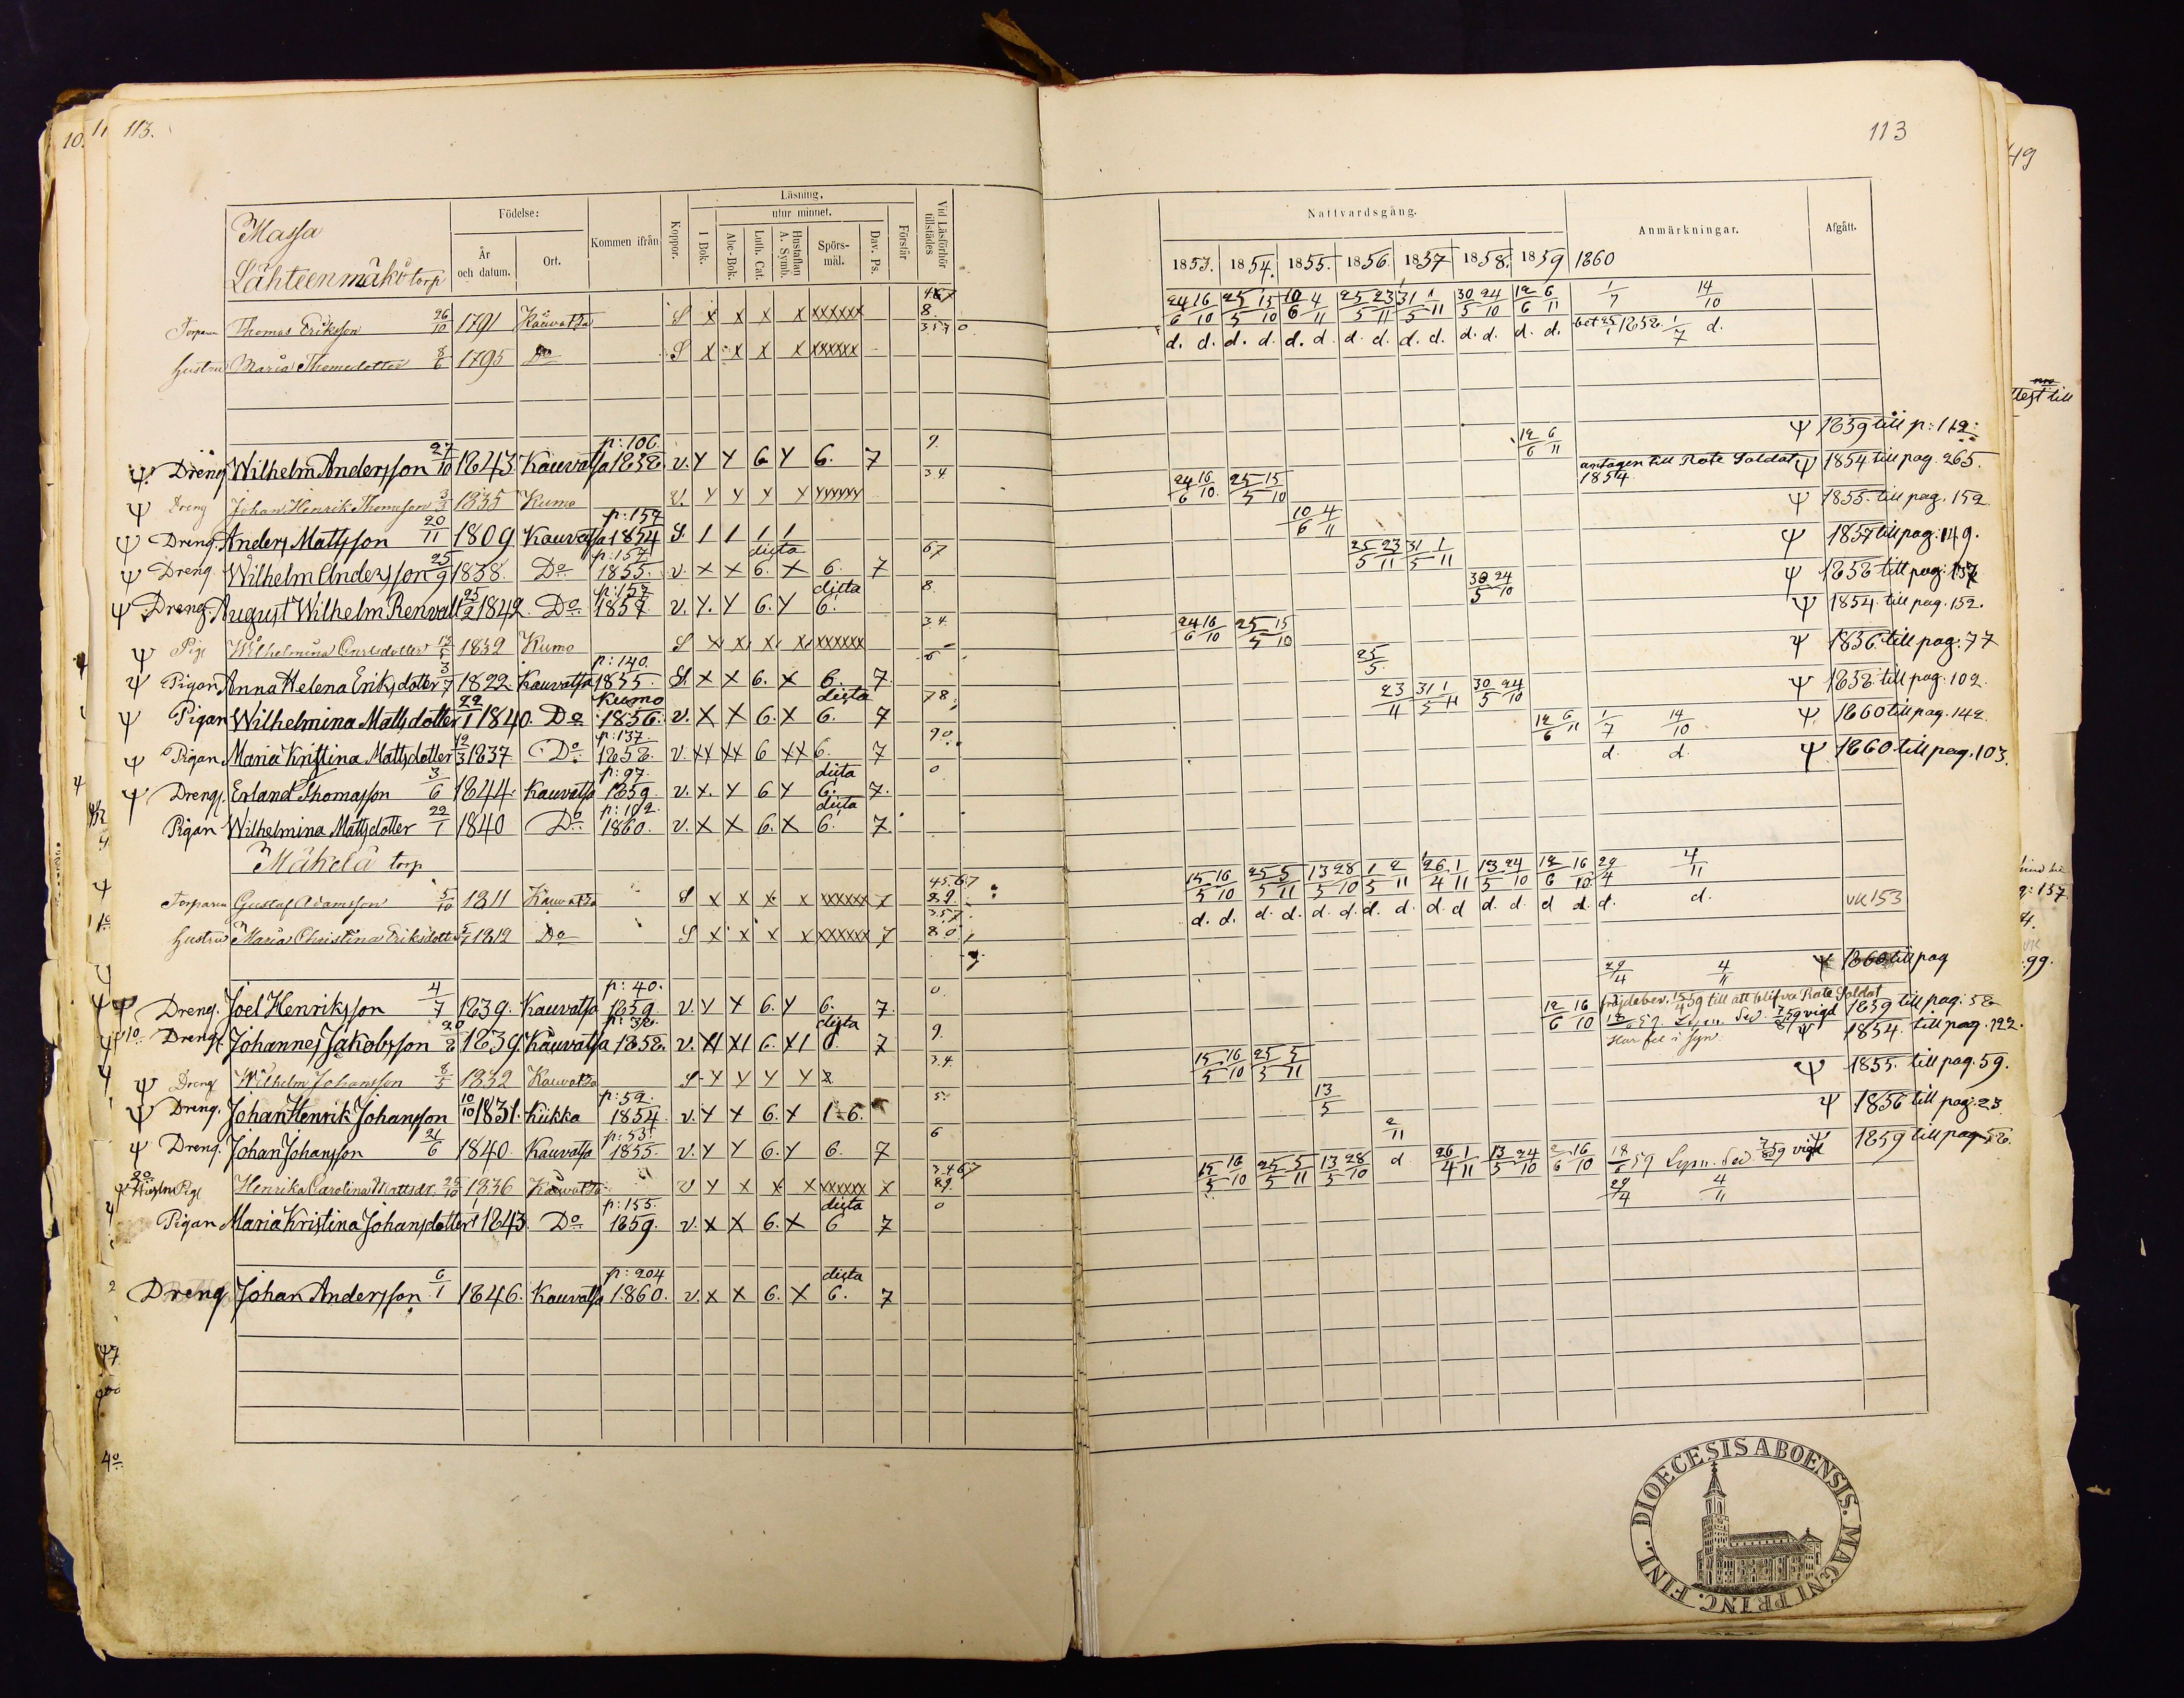 113.
113
Massa
Lähteenmäki torp
Födelse:
År och datum.
Ort.
Kommen ifrån
Koppor.
Läsning,
I Bok.
utur minnet.
Abc-Bok.
Luth. Cat.
Hustaflan A. Symb.
Spörs-mål.
Dav. Ps.
Förstår
Vid Läsförhör tillstädes
Nattvardsgång.
1853. 1854. 1855. 1856. 1857 1858. 1859 1860
Anmärkningar.
Afgått.
Torparen Thomas Eriksson 26/10 1791 Kauvatsa S x x x x xxxxxx 8. 24/6 16/10 25/5 15/10 10/6 4/11 25/5 23/11 31/5 1/11 30/5 24/10 12/6 6/11 1/7 14/10
Hustru Maria Thomedotter 8/6 1795 Do S x x x x xxxxxx 3.5.7.0 d. d. d. d. d. d. d. d. d. d. d. d. d. d. 1/7 d.
Ψ Dreng Wilhelm Andersson 27/10 1843 Kauvatsa p: 106. 1858 v. Y Y 6 Y 6. 7 9. 12/6 6/11 Ψ 1859 till p: 112.
Ψ Dreng Johan Henrik Thomasson 3/3 1835 Kumo v. Y Y Y Y YYYYYY 3.4. 24/6 16/10 25/5 15/10 antagen till Rote Soldat 1854 Ψ 1854 till pag. 265.
Ψ Dreng. Anders Mattsson 20/11 1809 Kauvatsa p: 157 1854 S. 1 1 1 1 10/6 4/11 Ψ 1855. till pag. 152
Ψ Dreng. Wilhelm Andersson 25/9 1838. Do p: 157. 1855. v. x x 6. x dicta 6. 7 67 25/5 23/11 31/5 1/11 Ψ 1857 till pag. 149.
Ψ Dreng. August Wilhelm Renvall 25/2 1842. Do p: 157 1857. v. Y. Y 6. Y dicta 6. 8. 30/5 24/10 Ψ 1858 till pag: 137
Ψ Pig Wilhelmina Carlsdotter 1832 Kumo S x x x x xxxxxx 3.4. 24/6 16/10 25/5 15/10 Ψ 1854. till pag. 152.
Ψ Pigan Anna Helena Eriksdotter 3/7 1822 Kauvatsa p: 140. 1855 S. x x 6. x 6. 7. 6 25/5 Ψ 1856. till pag. 77
Ψ Pigan Wilhelmina Mattsdotter 22/1 1840. Do Kumo 1856. v. x x 6. x dicta 6. 7 78. 23/11 31/5 1/11 30/5 24/10 Ψ 1858. till pag. 102.
Ψ Pigan Maria Kristina Mattsdotter 12/3 1837 Do p: 137. 1858. v. xx xx 6 xx 6. 7 90. 12/6 6/11 1/7 14/10 Ψ. 1860 till pag. 142
Ψ Drengs. Erland Thomasson 3/6 1844. Kauvatsa p: 97. 1859. v. x. Y 6 Y dicta 6. 7. 0 d. d. Ψ 1860 till pag. 103.
Pigan Wilhelmina Mattsdotter 22/1 1840 Do p: 102. 1860. v. x x 6. x dicta 6. 7
Mäkelä torp
Torparen Gustaf Adamsson 5/10 1811 Kauvatsa S x x x x xxxxxx 7 45.67 89. 15/5 16/10 25/5 5/11 13/5 28/10 1/5 2/11 26/4 1/11 13/5 24/10 12/6 16/10 29/4 4/11
Hustru Maria Christina Eriksdotter 1812 Do S x x x x xxxxxx 7 3.5.7. 8.0 d. d. d. d. d. d. d. d. d. d d. d. d d. d. d. VK 153
Dreng. Joel Henriksson 4/7 1839. Kauvatsa p: 40. 1859. v. Y Y 6. Y 6. 7 0. 29/4 4/11 1860 till pag
Dreng. Johannes Jakobsson 1839. Kauvatsa 1858. v. 6. dicta 6. 7 9. 12/6 16/10 till att blifva Rote Soldat vigd 1859 till pag: 58
Har fel i syn
Ψ Dreng Wilhelm Johansson 8/5 1832 Kauvatsa S Y Y Y Y 3.4. 15/5 16/10 25/5 5/11 Ψ 1854. till pag. 122.
Ψ Dreng. Johan Henrik Johansson 10/10 1831. Kiikka p: 59. 1854. v. Y Y 6. Y 1-6. 5. 13/5 Ψ 1855. till pag. 59.
Ψ Dreng. Johan Johansson 21/6 1840. Kauvatsa p: 53. 1855. v. Y Y 6. Y 6. 7 6 2/11 Ψ 1856 till pag. 23
Pig Henrika Carolina Mattsdr. 25/10 1836 Kauvatsa v Y x x x xxxxxx x 3.4.67 89. 15/5 16/10 25/5 5/11 13/5 28/10 d 26/4 1/11 13/5 24/10 16/10 18/6 59 Lysn. Sed. vigd 1859 till pag 58.
Pigan Maria Kristina Johansdotter 1843 Do p: 155. 1859. v. x x 6. x dicta 6 7 0 29/4 4/11
Dreng Johan Andersson 6/1 1846. Kauvatsa p: 204 1860. v. x x 6. x dicta 6. 7
DIOECESIS ABOENSIS. MAGNI PRINC. FINL.